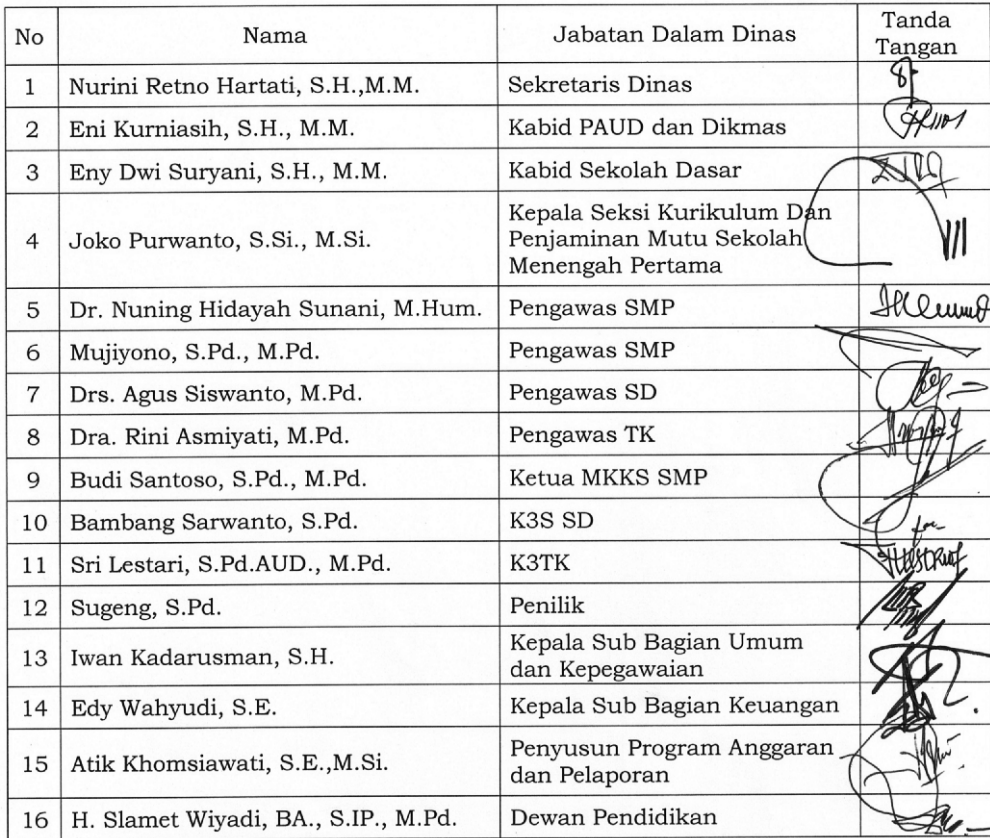 No Nama Jabatan Dalam Dinas Tanda
Tangan
1 Nurini Retno Hartati, S.H.,M.M. Sekretaris Dinas
2 Eni Kurniasih, S.H., M.M. Kabid PAUD dan Dikmas
3 Eny Dwi Suryani, S.H., M.M. Kabid Sekolah Dasar
4 Joko Purwanto, S.Si., M.Si. Kepala Seksi Kurikulum Dan
Penjaminan Mutu Sekolah
Menengah Pertama
5 Dr. Nuning Hidayah Sunani, M.Hum. Pengawas SMP
6 Mujiyono, S.Pd., M.Pd. Pengawas SMP
7 Drs. Agus Siswanto, M.Pd. Pengawas SD
8 Dra. Rini Asmiyati, M.Pd. Pengawas TK
9 Budi Santoso, S.Pd., M.Pd. Ketua MKKS SMP
10 Bambang Sarwanto, S.Pd. K3S SD
11 Sri Lestari, S.Pd.AUD., M.Pd. K3TK
12 Sugeng, S.Pd. Penilik
13 Iwan Kadarusman, S.H. Kepala Sub Bagian Umum
dan Kepegawaian
14 Edy Wahyudi, S.E. Kepala Sub Bagian Keuangan
15 Atik Khomsiawati, S.E.,M.Si. Penyusun Program Anggaran
dan Pelaporan
16 H. Slamet Wiyadi, BA., S.IP., M.Pd. Dewan Pendidikan